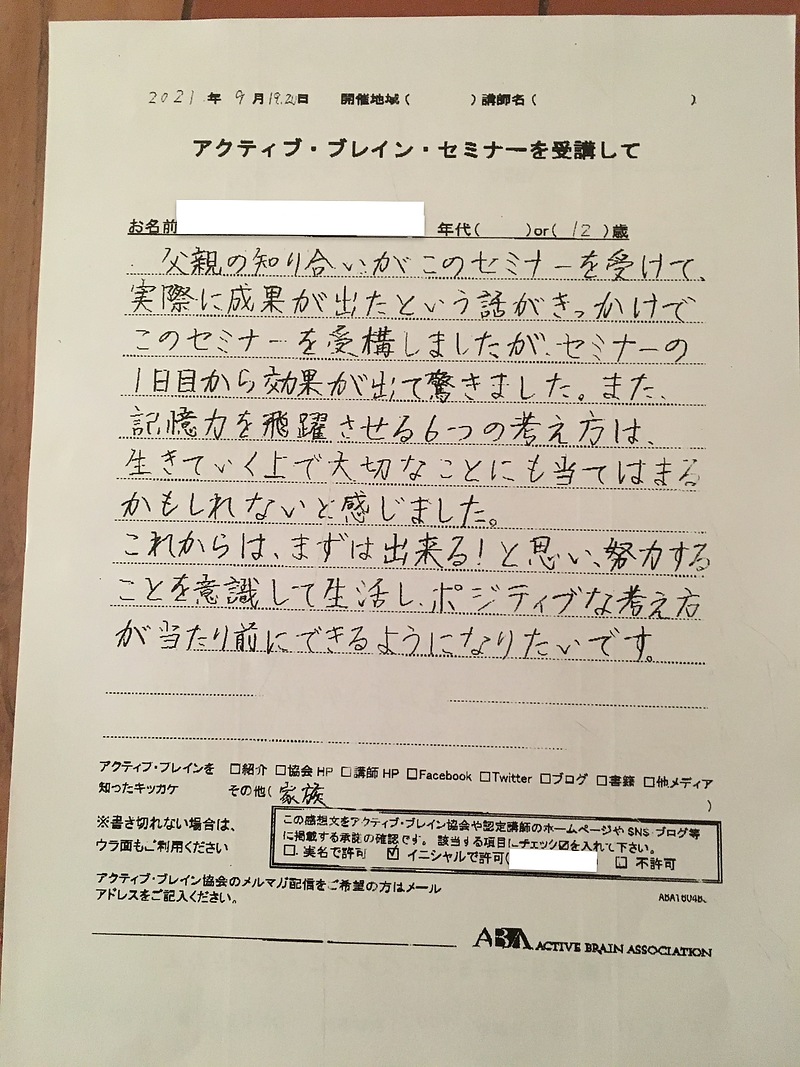 2021年 9月19.20日 開催地域( )講師名( )
アクティブ・ブレイン・セミナーを受講して
お名前 年代( )or( 12 )歳
父親の知り合いがこのセミナーを受けて、
実際に成果が出たという話がきっかけで
このセミナーを受構しましたが、セミナーの
1日目から効果が出て驚きました。また、
記憶力を飛躍させる6つの考え方は、
生きていく上で大切なことにも当てはまる
かもしれないと感じました。
これからは、まずは出来る!と思い、努力する
ことを意識して生活し、ポジティブな考え方
が当たり前にできるようになりたいです。
アクティブ・ブレインを □紹介 □協会HP □講師HP □Facebook □Twitter □ブログ □書籍 □他メディア
知ったキッカケ その他( 家族 )
※書き切れない場合は、
ウラ面もご利用ください
この感想文をアクティブ・ブレイン協会や認定講師のホームページやSNS ブログ等
に掲載する承諾の確認です。 該当する項目にチェック☑を入れて下さい。
□ 実名で許可 ☑ イニシャルで許可( □ 不許可
アクティブ・ブレイン協会のメルマガ配信をご希望の方はメール
アドレスをご記入ください。
ABA ACTIVE BRAIN ASSOCIATION